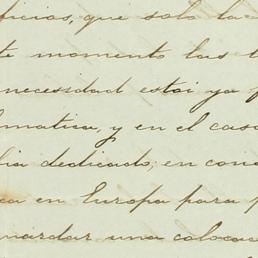 ficios, que solo la
te momento las
necesidad estoi ya
lmatica, y en el caso
lia dedicado; en con
ca en Europa para
uardar una coloca